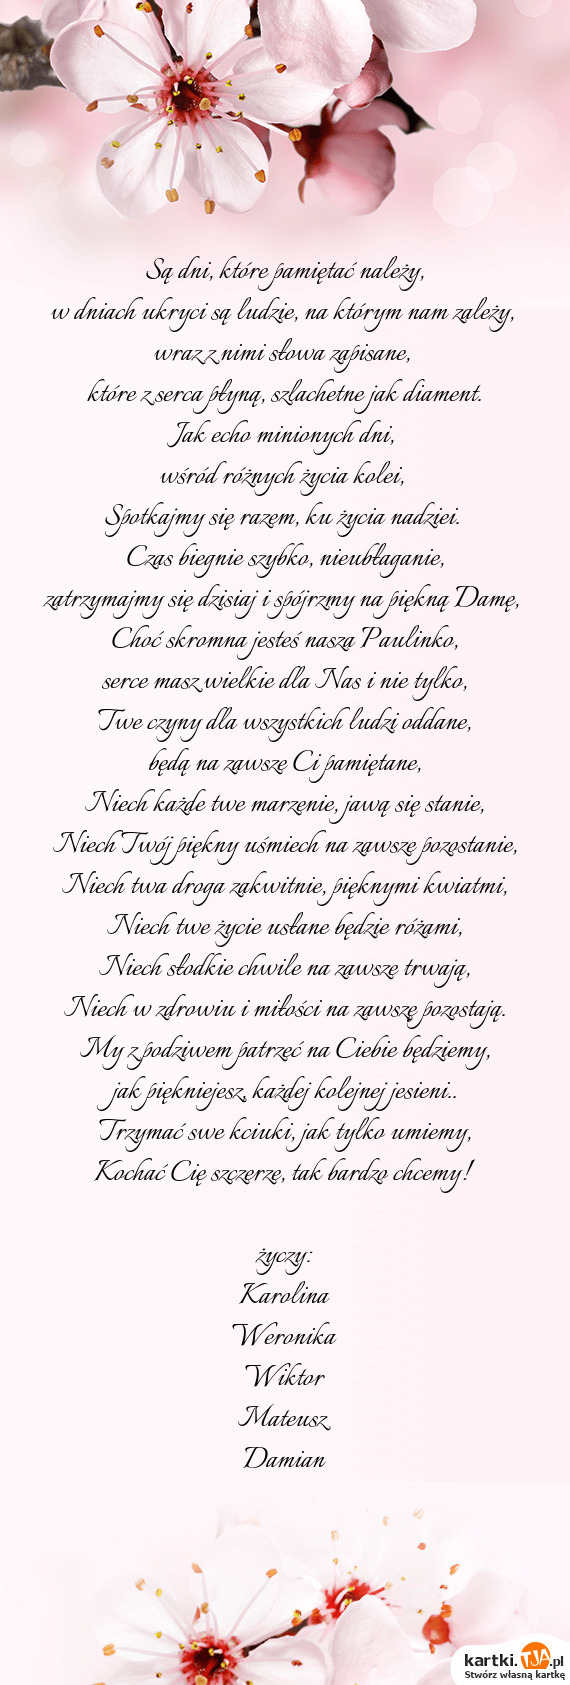 Są dni, które pamiętać należy,
w dniach ukryci są ludzie, na którym nam zależy,
wraz z nimi słowa zapisane,
które z serca płyną, szlachetne jak diament.
Jak echo minionych dni,
wśród różnych życia kolei,
Spotkajmy się razem, ku życia nadziei.
Czas biegnie szybko, nieubłaganie,
zatrzymajmy się dzisiaj i spójrzmy na piękną Damę,
Choć skromna jesteś nasza Paulinko,
serce masz wielkie dla Nas i nie tylko,
Twe czyny dla wszystkich ludzi oddane,
będą na zawsze Ci pamiętane,
Niech każde twe marzenie, jawą się stanie,
Niech Twój piękny uśmiech na zawsze pozostanie,
Niech twa droga zakwitnie, pięknymi kwiatmi,
Niech twe życie usłane będzie różami,
Niech słodkie chwile na zawsze trwają,
Niech w zdrowiu i miłości na zawsze pozostają.
My z podziwem patrzeć na Ciebie będziemy,
jak piękniejesz, każdej kolejnej jesieni..
Trzymać swe kciuki, jak tylko umiemy,
Kochać Cię szczerze, tak bardzo chcemy!
życzy:
Karolina
Weronika
Wiktor
Mateusz
Damian
kartki.TJA.pl
Stwórz własną kartkę